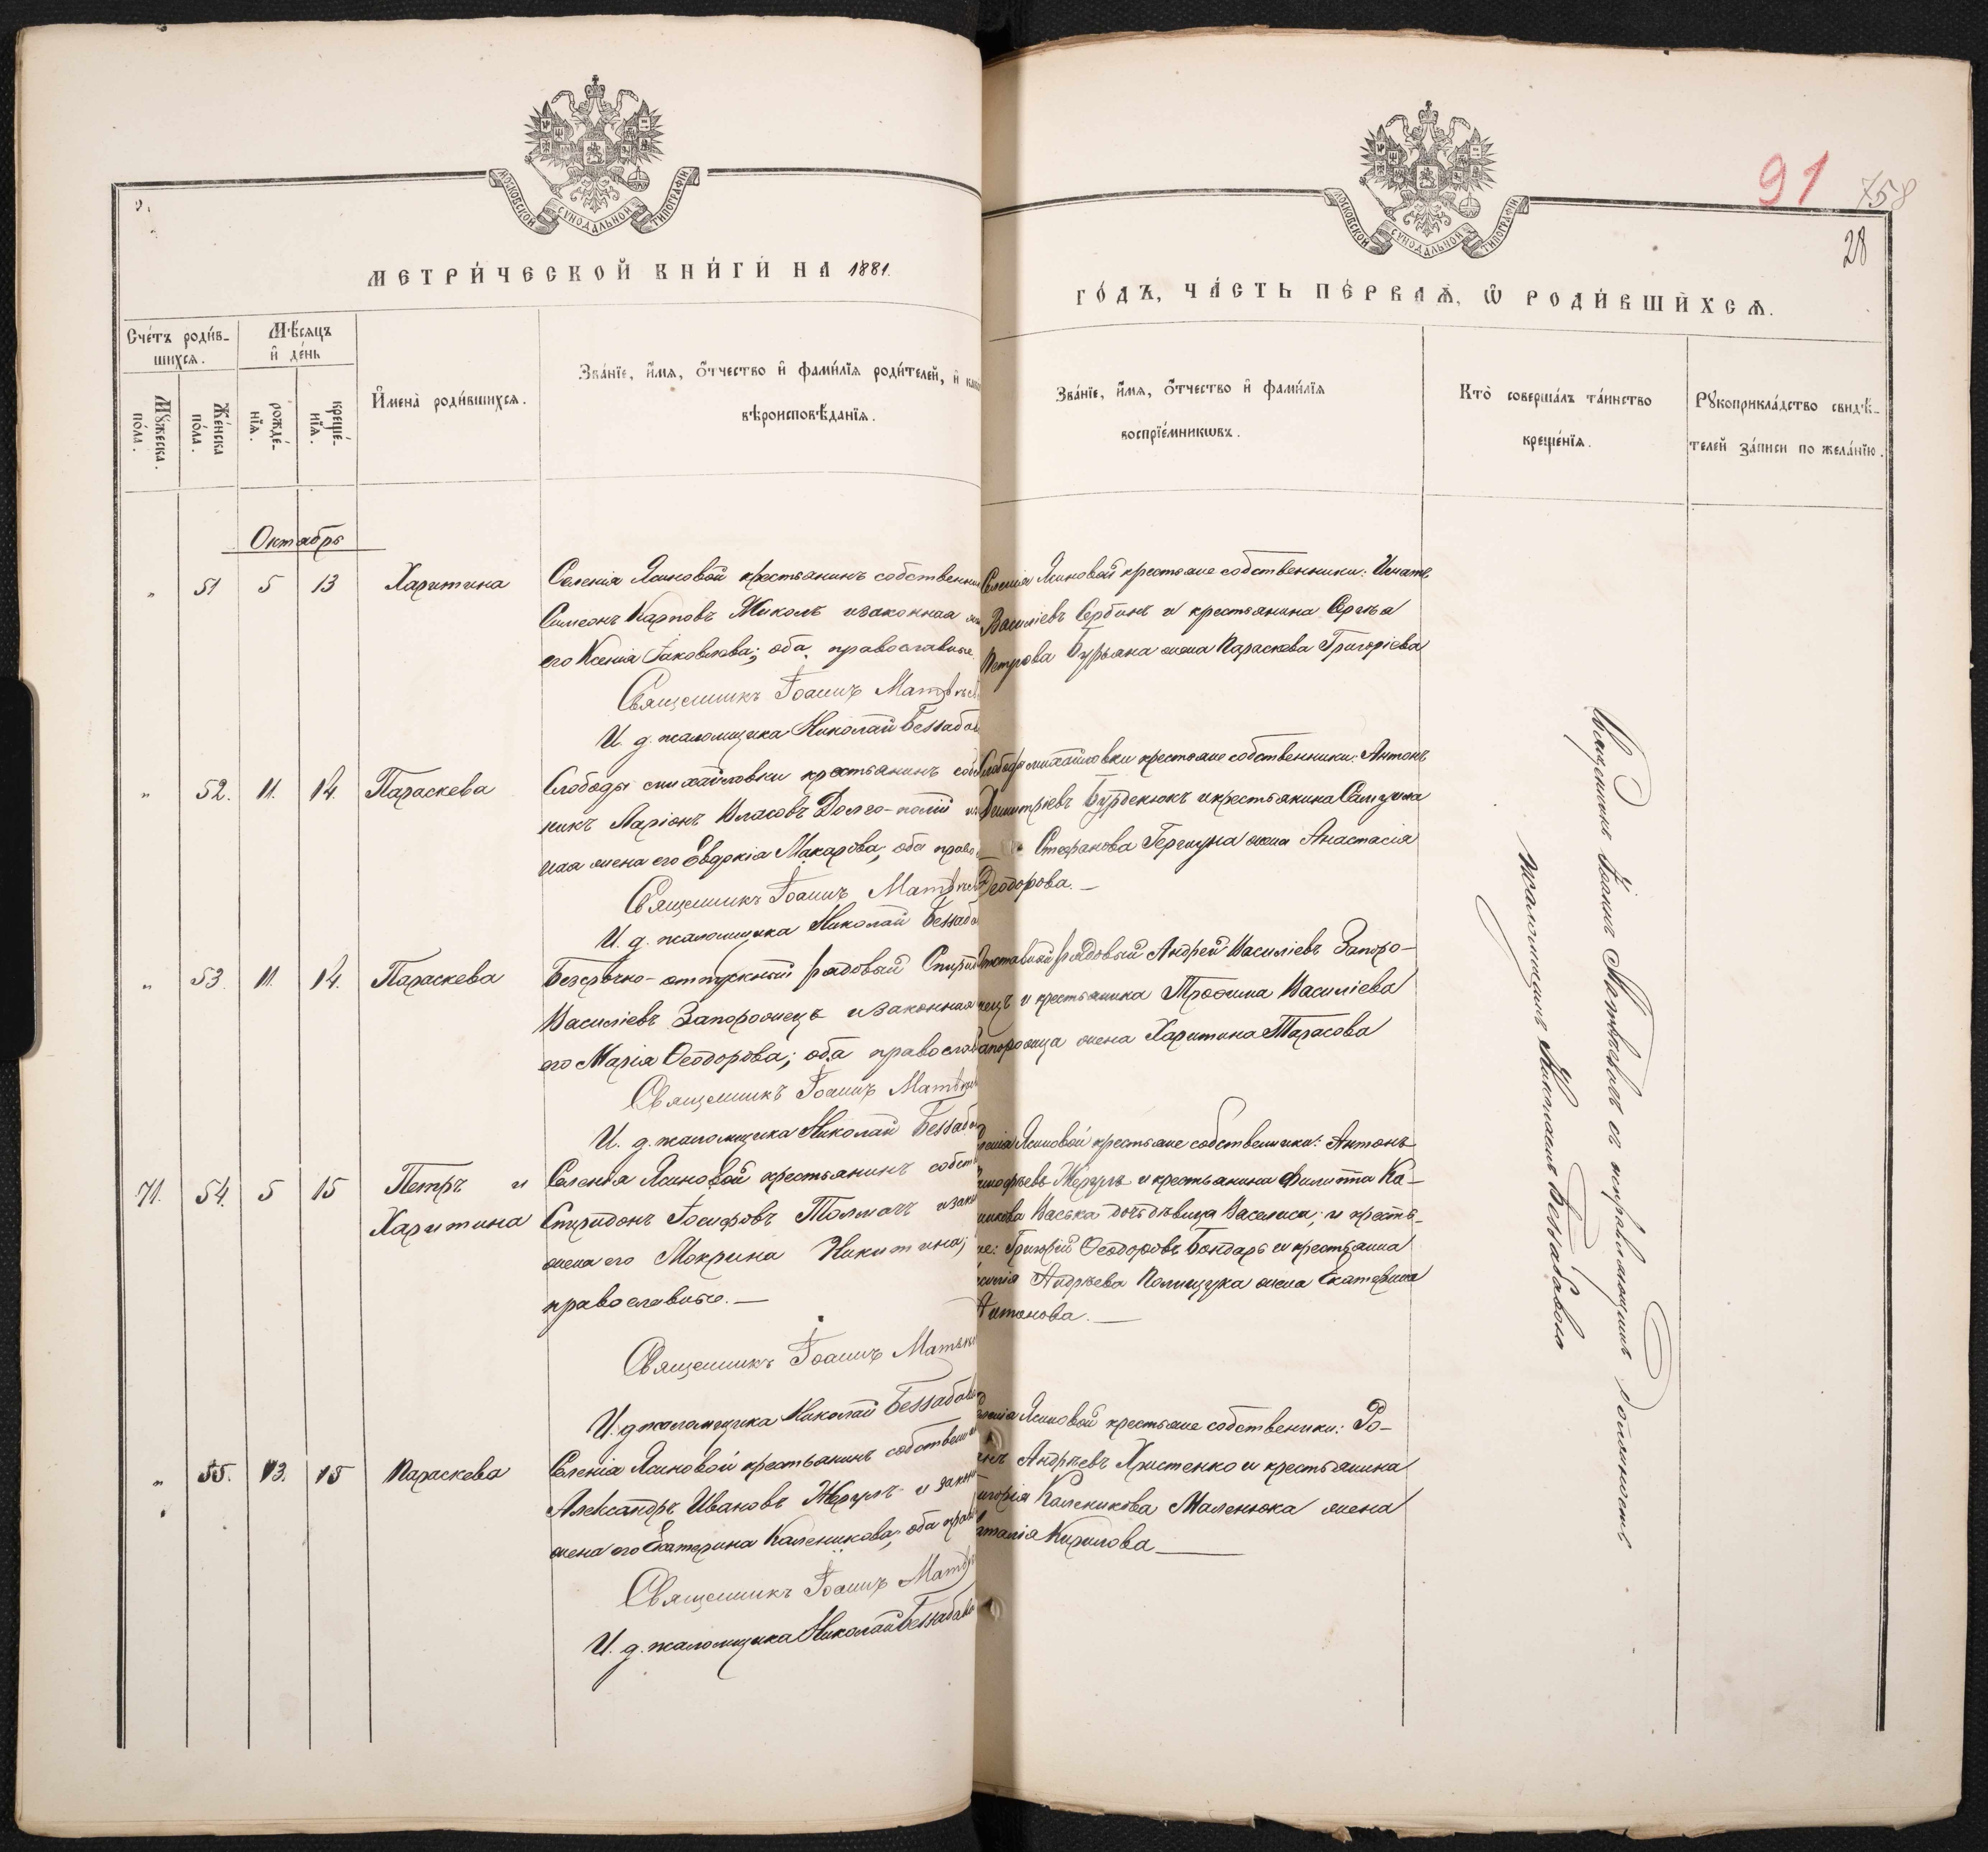 МОСКОВСКОЙ СѴНОДАЛЬНОЙ ТИПОГРАФІИ
МЕТРИ́ЧЕСКОЙ КНИ́ГИ НА 1881.
Сче́тъ роди́в-
шихся.
Мѣ́сяцъ
и҆ де́нь
Мꙋ́жеска
по́ла.
Же́нска
по́ла.
рожде́-
нїѧ.
креще́-
нїѧ.
И҆мена̀ роди́вшихся.
Зва́нїе, и҆́мѧ, ѻ҆́тчество и҆ фами́лїѧ роди́телей, и҆
вѣроисповѣ́данїѧ.
Октябрь
" 51 5 13 Харитина
Селенія Ясиновой крестьянинъ собственни
Симеонъ Карповъ Жиколъ и законная
его Ксенія Іаковлева; оба православные.
Священникъ Іоаннъ Матвѣев
И. д. псаломщика Николай Беззабав
" 52. 11. 14. Параскева
Слободы михайловки крестьянинъ соб
никъ Ларіонъ Власовъ Долго-полый из
ная жена его Евдокіа Макарова; оба право
Священникъ Іоаннъ Матвѣев
И. д. псаломщика Николай Беззаба
" 53. 11. 14. Параскева
Безсрочно-отпускный рядовый Спирид
Василіевъ Запорожецъ и законная
его Марія Ѳеодорова; оба православ
Священникъ Іоаннъ Матвѣев
И. д. псаломщика Николай Беззаб
71. 54. 5 15 Петръ и
Харитина
Селенія Ясиновой крестьянинъ собст
Спиридонъ Іосифовъ Толмачъ и зако
жена его Мокрина Никитина;
православные. —
Священникъ Іоаннъ Матвѣев
И. д. псаломщика Николай Беззабав
" 55. 13. 15 Параскева
Селенія Ясиновой крестьянинъ собствен
Александръ Ивановъ Жеруль и закон
жена его Екатерина Каленикова; оба прав
Священникъ Іоаннъ Матв
И. д. псаломщика Николай Беззабаво
91 758
28
МОСКОВСКОЙ СѴНОДАЛЬНОЙ ТИПОГРАФІИ
ГО́ДЪ, ЧА́СТЬ ПЕ́РВАѦ, Ѡ҆ РОДИ́ВШИХСѦ.
Зва́нїе, и҆́мѧ, ѻ҆́тчество и҆ фами́лїѧ
воспрїе́мникѡвъ.
Кто̀ соверша́лъ та́инство
креще́нїѧ.
Рꙋкоприкла́дство свидѣ́-
телей за́писи по жела́нїю.
Селенія Ясиновой крестьяне собственники: Игнатъ
Василіевъ Сербинъ и крестьянина Сергѣя
Петрова Бурьяна жена Параскева Григоріева
Слободы михайловки крестьяне собственники: Антонъ
Димитріевъ Бурдекюкъ и крестьянина
Стефанова жена Анастасія
Ѳеодорова. —
Отставный рядовый Андрей Василіевъ Запоро-
жецъ и крестьянина Трофима Василіева
апорожца жена Харитина Тарасова
ленія Ясиновой крестьяне собственники: Антонъ
Жеруль и крестьянина Филиппа Ка-
никова Васька дочь дѣвица Василиса; и кресть-
не: Григорій Ѳеодоровъ Бондарь и крестьянина
Андрѣева Полищука жена Екатерина
Антонова. —
Селенія Ясиновой крестьяне собственики: Ро-
анъ Андрѣевъ Христенко и крестьянина
игорія Каленикова Маленюка жена
аталія Кирилова —
Священникъ Іоаннъ Матвѣевъ съ исправляющимъ должность
псаломщика Николаемъ Беззабавою